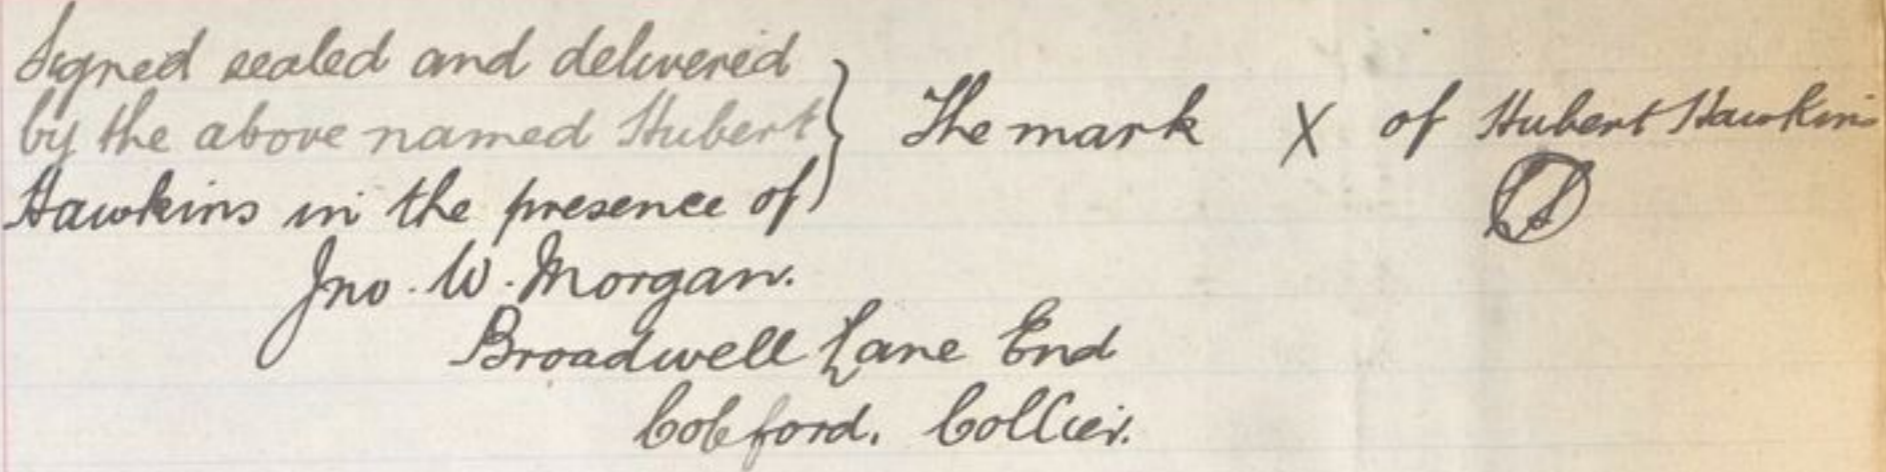 Signed sealed and delivered
by the above named Hubert
Hawkins in the presence of
} The mark X of Hubert Hawkins
LS
Jno. W. Morgan.
Broadwell Lane End
Coleford. Collier.